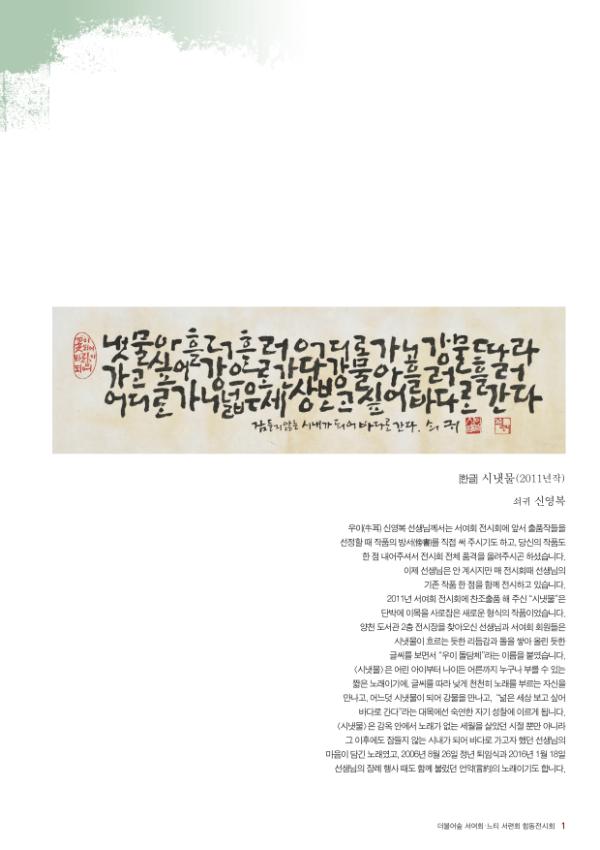 냇물아 흘러 흘러 어디로 가니 강물 따라
가고 싶어 강으로 간다 강물아 흘러 흘러
어디로 가니 넓은 세상 보고 싶어 바다로 간다
잠들지 않는 시내가 되어 바다로 간다. 쇠귀
[한글] 시냇물(2011년작)
쇠귀 신영복
우이(牛耳) 신영복 선생님께서는 서여회 전시회에 앞서 출품작들을
선정할 때 작품의 방서(傍書)를 직접 써 주시기도 하고, 당신의 작품도
한 점 내어주셔서 전시회 전체 품격을 올려주시곤 하셨습니다.
이제 선생님은 안 계시지만 매 전시회때 선생님의
기존 작품 한 점을 함께 전시하고 있습니다.
2011년 서여회 전시회에 찬조출품 해 주신 “시냇물”은
단박에 이목을 사로잡은 새로운 형식의 작품이었습니다.
양천 도서관 2층 전시장을 찾아오신 선생님과 서여회 회원들은
시냇물이 흐르는 듯한 리듬감과 돌을 쌓아 올린 듯한
글씨를 보면서 “우이 돌담체”라는 이름을 붙였습니다.
〈시냇물〉은 어린 아이부터 나이든 어른까지 누구나 부를 수 있는
짧은 노래이기에, 글씨를 따라 낮게 천천히 노래를 부르는 자신을
만나고, 어느덧 시냇물이 되어 강물을 만나고, “넓은 세상 보고 싶어
바다로 간다”라는 대목에선 숙연한 자기 성찰에 이르게 됩니다.
〈시냇물〉은 감옥 안에서 노래가 없는 세월을 살았던 시절 뿐만 아니라
그 이후에도 잠들지 않는 시내가 되어 바다로 가고자 했던 선생님의
마음이 담긴 노래였고, 2006년 8월 26일 정년 퇴임식과 2016년 1월 18일
선생님의 장례 행사 때도 함께 불렀던 언약(言約)의 노래이기도 합니다.
더불어숲 서여회·느티 서련회 합동전시회 1